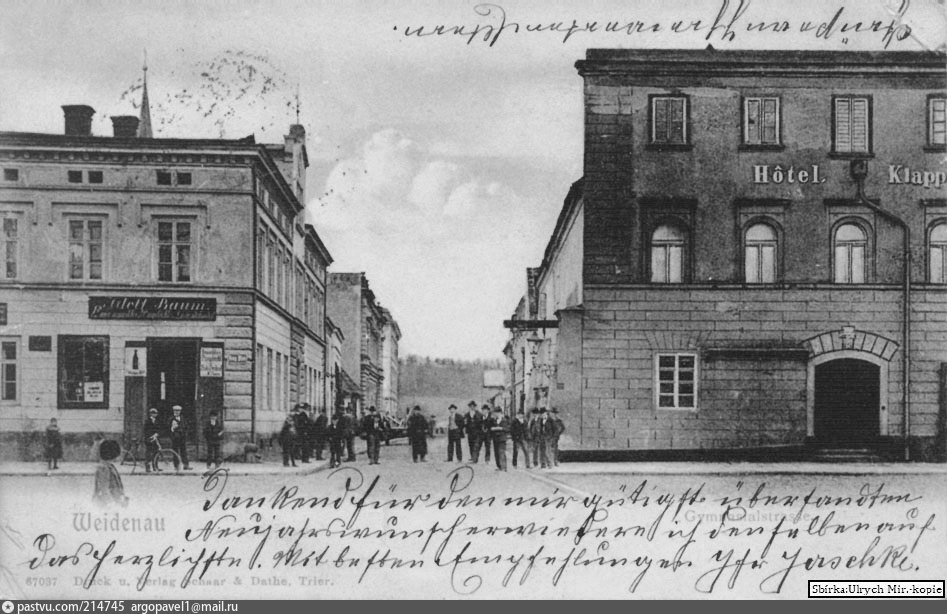 Hôtel Klapp
Adolf Baum
Dankend für den mir gütigst übersandten
Weidenau
Gymnasialstrasse
Neujahrswunsch erwiedere ich denselben auf
das Herzlichste. Mit besten Empfehlungen Ihr Jaschke.
67037 Druck u. Verlag Schaar & Dathe, Trier.
Sbírka:Ulrych Mir.-kopie
pastvu.com/214745 argopavel1@mail.ru